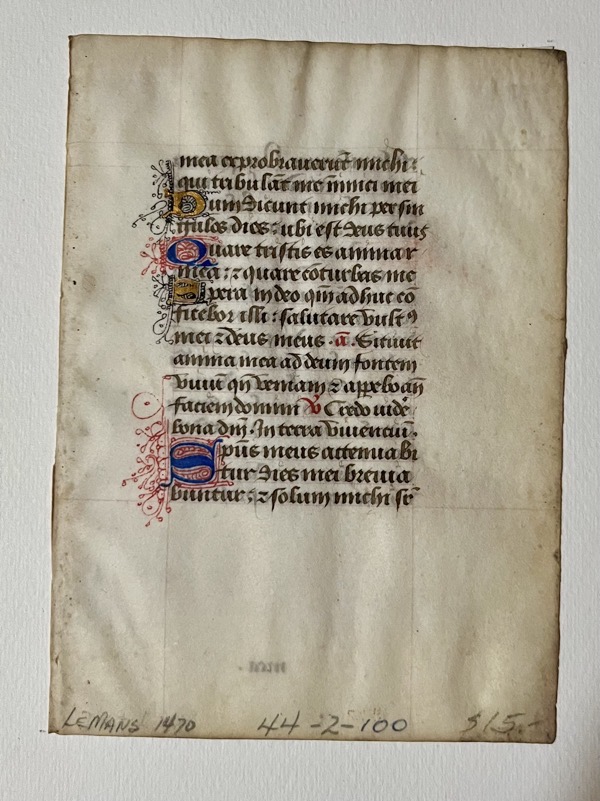 mea exprobraverūt michi
qui tribulāt me īimici mei
Dum dicunt michi per sin
gulos dies : ubi est deus tuus
Quare tristis es anima
mea : ⁊ quare cōturbas me
Spera in deo qm̄ adhuc cō
fitebor illi : salutare vult⁹
mei ⁊ deus meus . a . Sitivit
anima mea ad deum fontem
vivū qn̄ veniam ⁊ apparebo an̄
faciem domini Credo vidē
bona dn̄i . In terra viventiū .
Sp̄us meus attenuabi
tur dies mei brevia
buntur : ⁊ solum michi
LEMANS 1470 44-2-100 $15.-